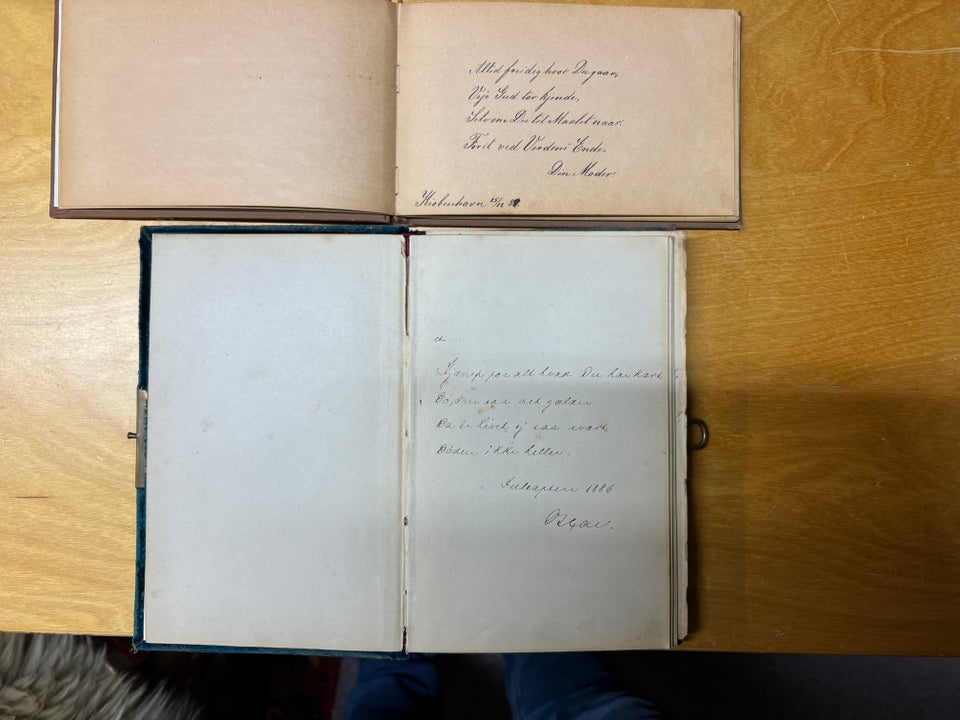 Altid freidig hvor Du gaar,
Veje Gud tør kjende,
Selv om Du til Maalet naar.
Først ved Verdens Ende.
Din Moder.
Kjøbenhavn 25/12
Kjæmp for alt hvad Du har kært
Dø, om saa det gælder
Da er Livet ej saa svært
Døden ikke heller.
Juleaften 1886